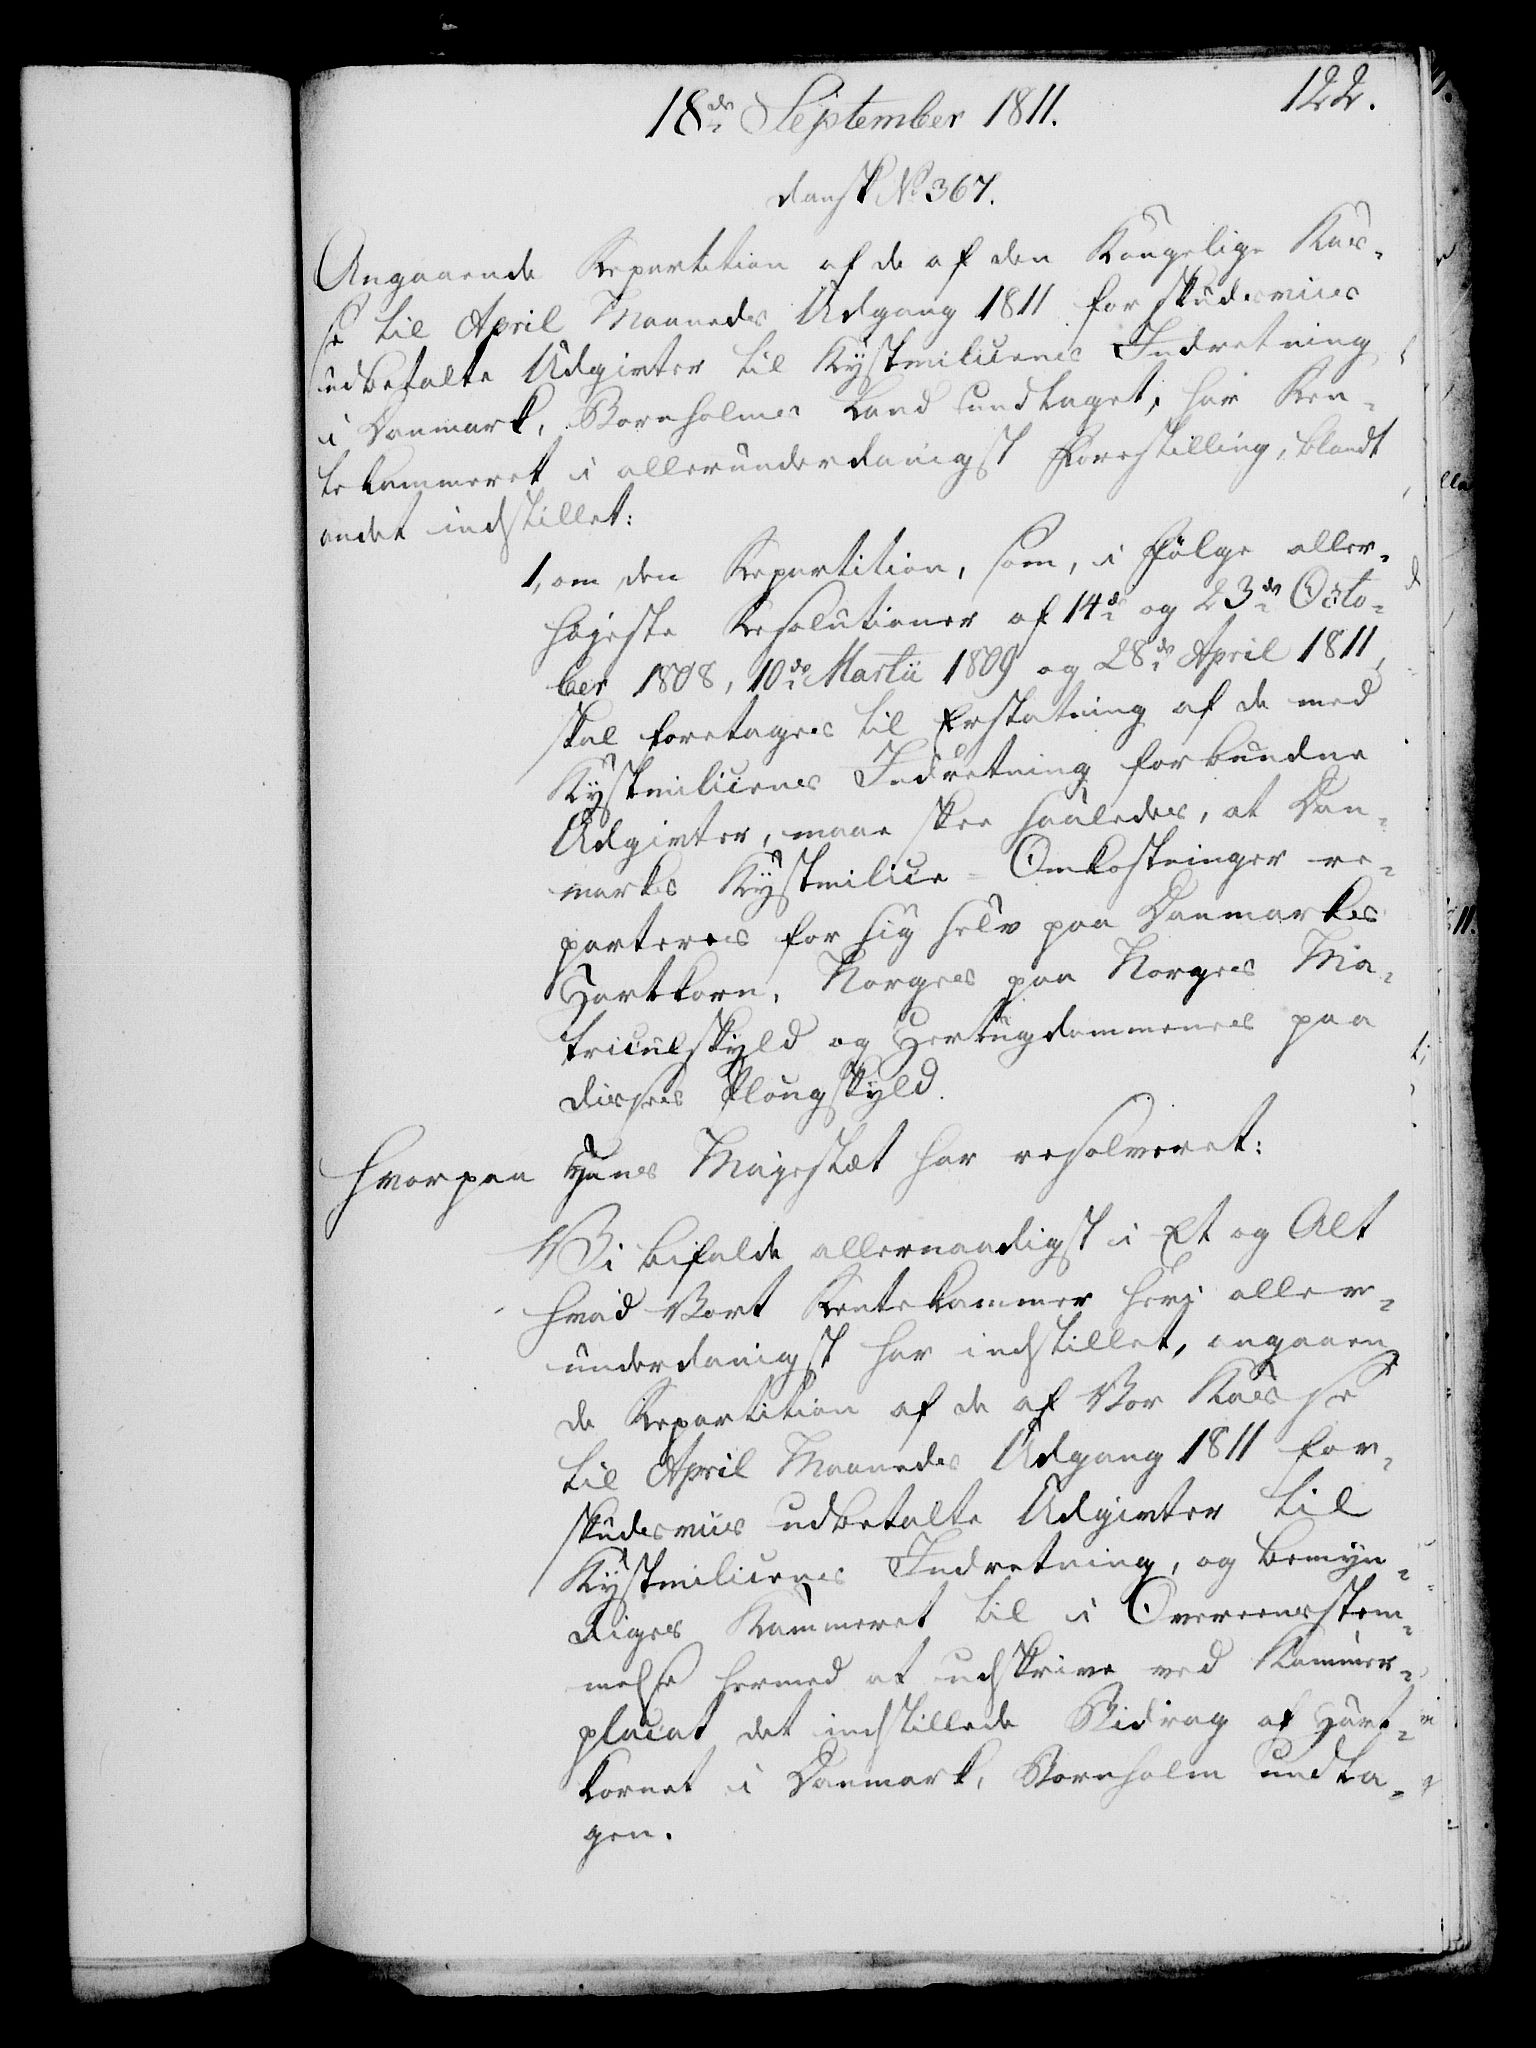 18de September 1811.
122.
dansk No 367.
Angaaende Repartition af de af den Kongelige Kas-
se til April Maaneds Udgang 1811 forskudsviis
udbetalte Udgivter til Kystmilicens Indretning
i Danmark, Bornholms Land undtaget, har Ren-
tekammeret i allerunderdanigst Forestilling, blandt
andet indstillet:
1, om den Repartition, som, i Følge aller-
højeste Resolutioner af 14de og 23de Octo-
ber 1808, 10de Martii 1809 og 28de April 1811,
skal foretages til Erstatning af de med
Kystmilicens Indretning forbundne
Udgivter, maae skee saaledes, at Dan-
marks Kystmilice-Omkostninger re-
parteres for sig selv paa Danmarkes
Hartkorn, Norges paa Norges Ma-
triculskyld og Hertugdommenes paa
disses Plougskyld.
Hvorpaa Hans Majestæt har resolveret:
Vi bifalde allernaadigst i Et og Alt
hvad Vort Rentekammer herj aller-
underdanigst har indstillet, angaaen
de Repartition af de af Vor Kasse
til April Maaneds Udgang 1811 for-
skudsviis udbetalte Udgivter til
Kystmilicens Indretning, og bemyn-
diges Kammeret til i Overeensstem-
melse hermed at udskrive ved Kammer-
placat det indstillede Bidrag af Hart-
kornet i Danmark, Bornholm undta-
gen.